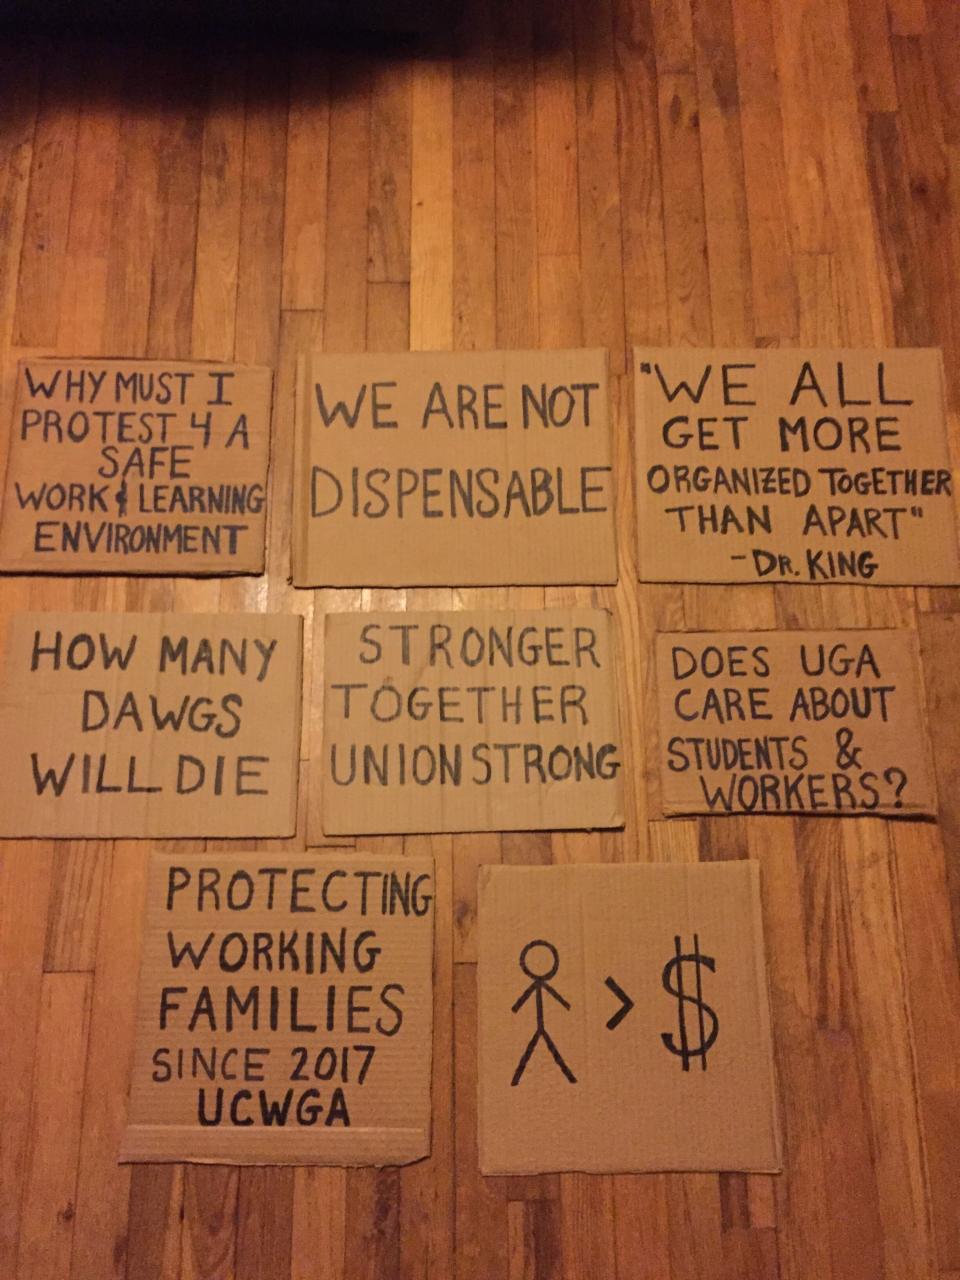 WHY MUST I
PROTEST 4 A
SAFE
WORK & LEARNING
ENVIRONMENT
WE ARE NOT
DISPENSABLE
"WE ALL
GET MORE
ORGANIZED TOGETHER
THAN APART"
-DR. KING
HOW MANY
DAWGS
WILL DIE
STRONGER
TOGETHER
UNION STRONG
DOES UGA
CARE ABOUT
STUDENTS &
WORKERS?
PROTECTING
WORKING
FAMILIES
SINCE 2017
UCWGA
> $